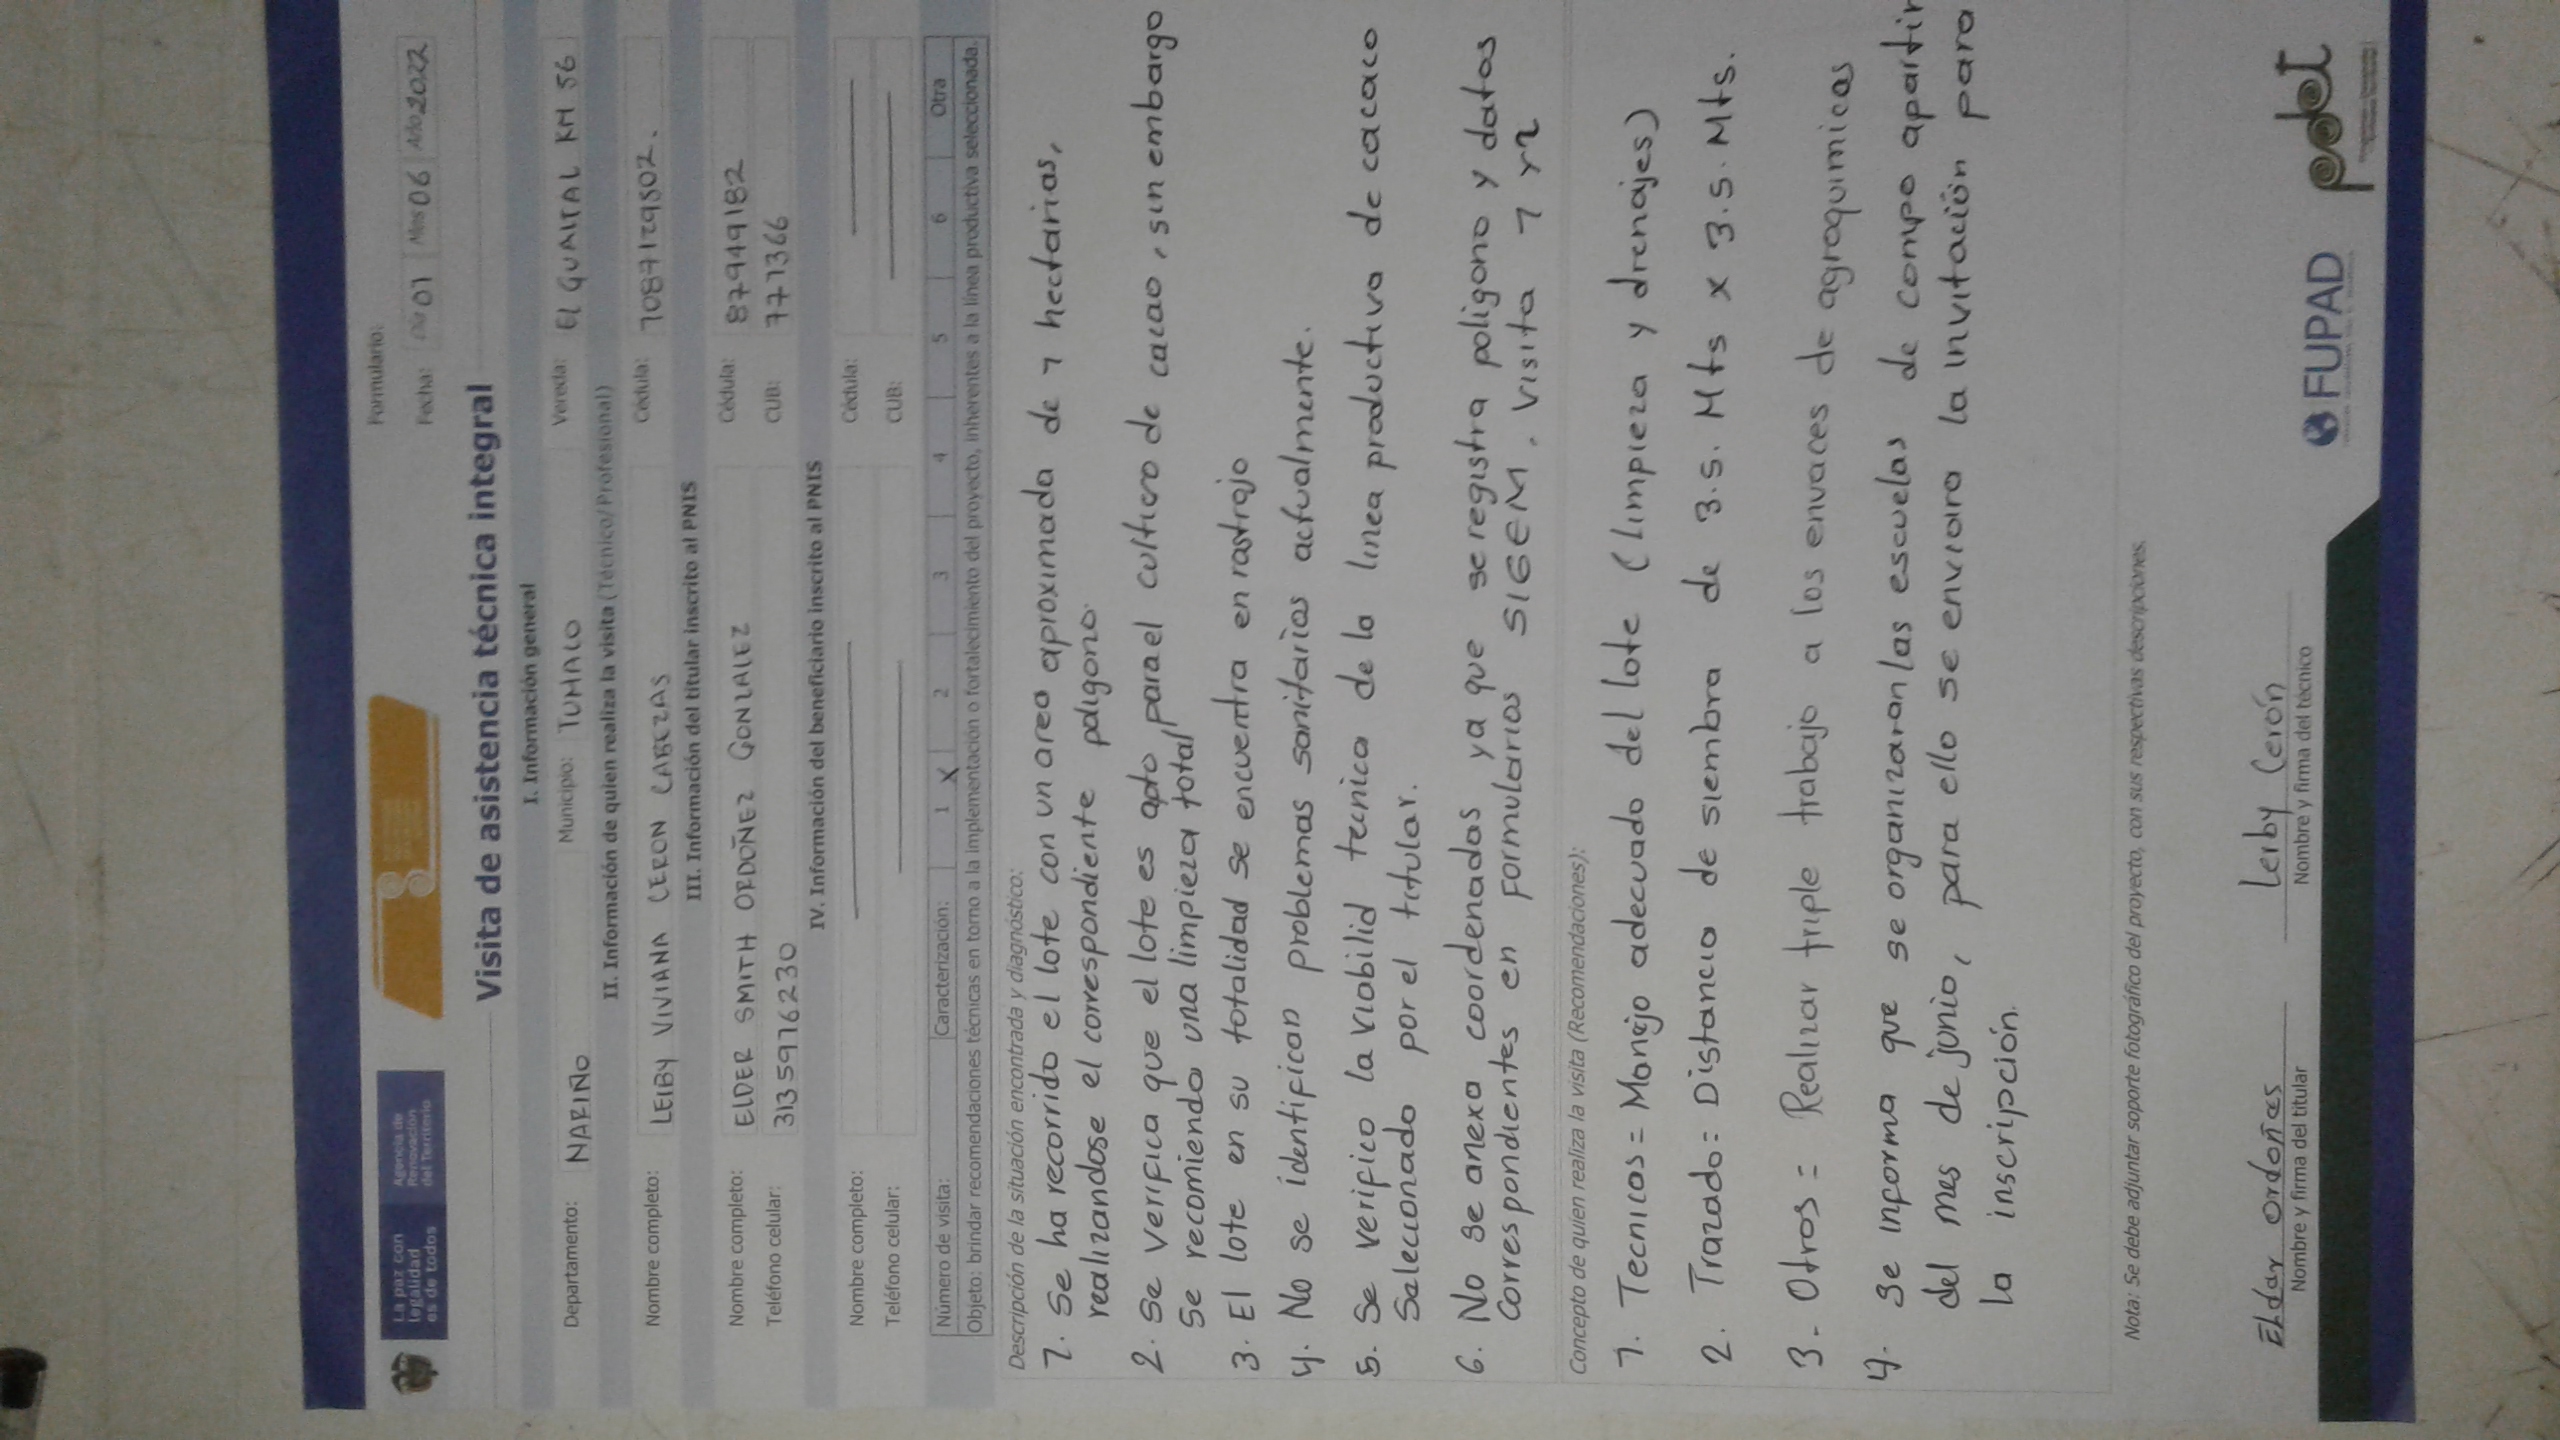 La paz con
legalidad
es de todos
Agencia de
Renovación
del Territorio
Formulario:
Fecha: Día 01 Mes 06 Año 2022
Visita de asistencia técnica integral
I. Información general
Departamento: NARIÑO Municipio: TUMACO Vereda: El GUALTAL KM 56
II. Información de quien realiza la visita (Técnico/Profesional)
Nombre completo: LEIBY VIVIANA CERON CABEZAS Cédula: 1087129502.
III. Información del titular inscrito al PNIS
Nombre completo: ElDER SMITH ORDOÑEZ GONZALEZ Cédula: 87949182
Teléfono celular: 3135976230 CUB: 771366
IV. Información del beneficiario inscrito al PNIS
Nombre completo: Cédula:
Teléfono celular: CUB:
Número de visita: Caracterización: 1 X 2 3 4 5 6 Otra
Objeto: brindar recomendaciones técnicas en torno a la implementación o fortalecimiento del proyecto, inherentes a la línea productiva seleccionada.
Descripción de la situación encontrada y diagnóstico:
1. Se ha recorrido el lote con un area aproximada de 1 hectarias,
realizandose el correspondiente poligono.
2. Se verifica que el lote es apto para el cultivo de cacao, sin embargo
Se recomienda una limpieza total
3. El lote en su totalidad se encuentra en rastrojo
4. No se identifican problemas sanitarios actualmente.
5. Se verifico la viabilid tecnica de la linea productiva de cacaco
Saleccionado por el titular.
6. No se anexa coordenadas ya que se registra poligono y datos
Correspondientes en formularios SIGEM, visita 1 y 2
Concepto de quien realiza la visita (Recomendaciones):
1. Tecnicos = Manejo adecuado del lote (limpieza y drenajes)
2. Trazado: Distancia de siembra de 3.5. Mts x 3.5. Mts.
3. Otros = Realizar triple trabajo a los envaces de agroquimicos
4. Se informa que se organizaran las escuelas de campo apartir
del mes de junio, para ello se enviara la invitación para
la inscripción.
Nota: Se debe adjuntar soporte fotográfico del proyecto, con sus respectivas descripciones.
Eldar ordoñes
Nombre y firma del titular
Leiby Cerón
Nombre y firma del técnico
FUPAD
pdet